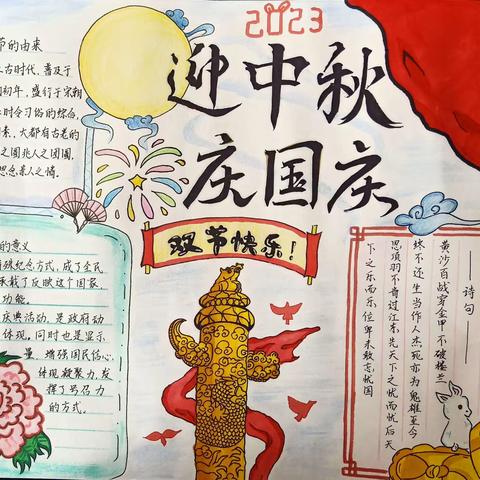 2023
迎中秋
庆国庆
双节快乐!
节的由来
古时代,普及于
初年,盛行于宋朝
时令习俗的综合,
素,大都有古老的
之圆兆人之团圆,
思念亲人之情。
的意义
殊纪念方式,成了全民
承载了反映这个国家,
功能。
庆典活动,是政府动
体现。同时也是显示
量、增强国民信心,
体现凝聚力,发
挥了号召力
的方式。
诗句
黄沙百战穿金甲不破楼兰
终不还生当作人杰死亦为鬼雄至今
思项羽不肯过江东先天下之忧而忧后天
下之乐而乐位卑未敢忘忧国